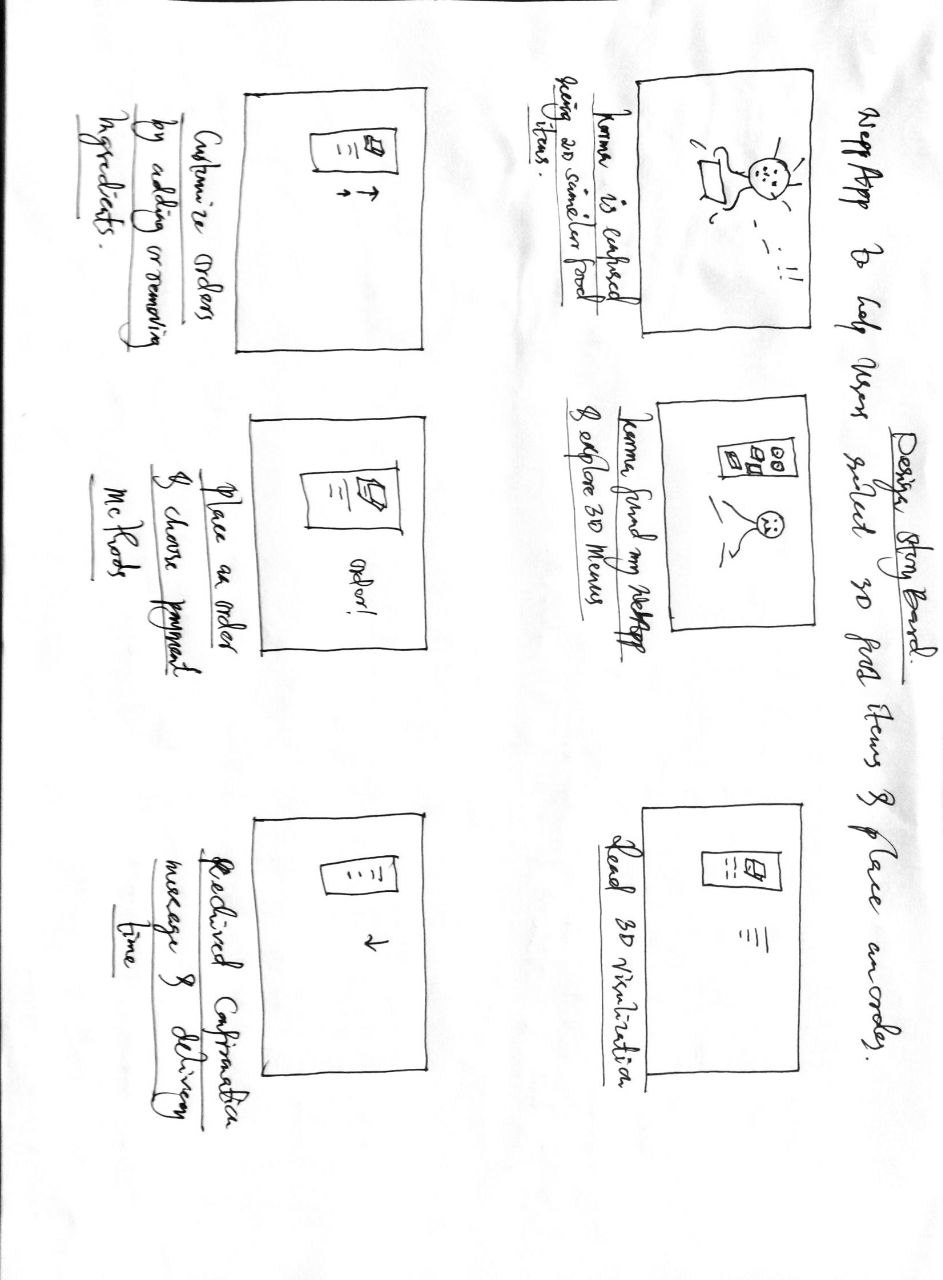 Design Story Board.
WeppApp to help users select 3D food items & place an order.
!!
Karma is confused
seeing 2D similer food
items.
Karma found my WebApp
& explore 3D Menus
Read 3D visulization
order!
Customize orders
by adding or removing
Ingredients.
Place an order
& choose payment
methods
Rechived Confirmation
message & delivery
time